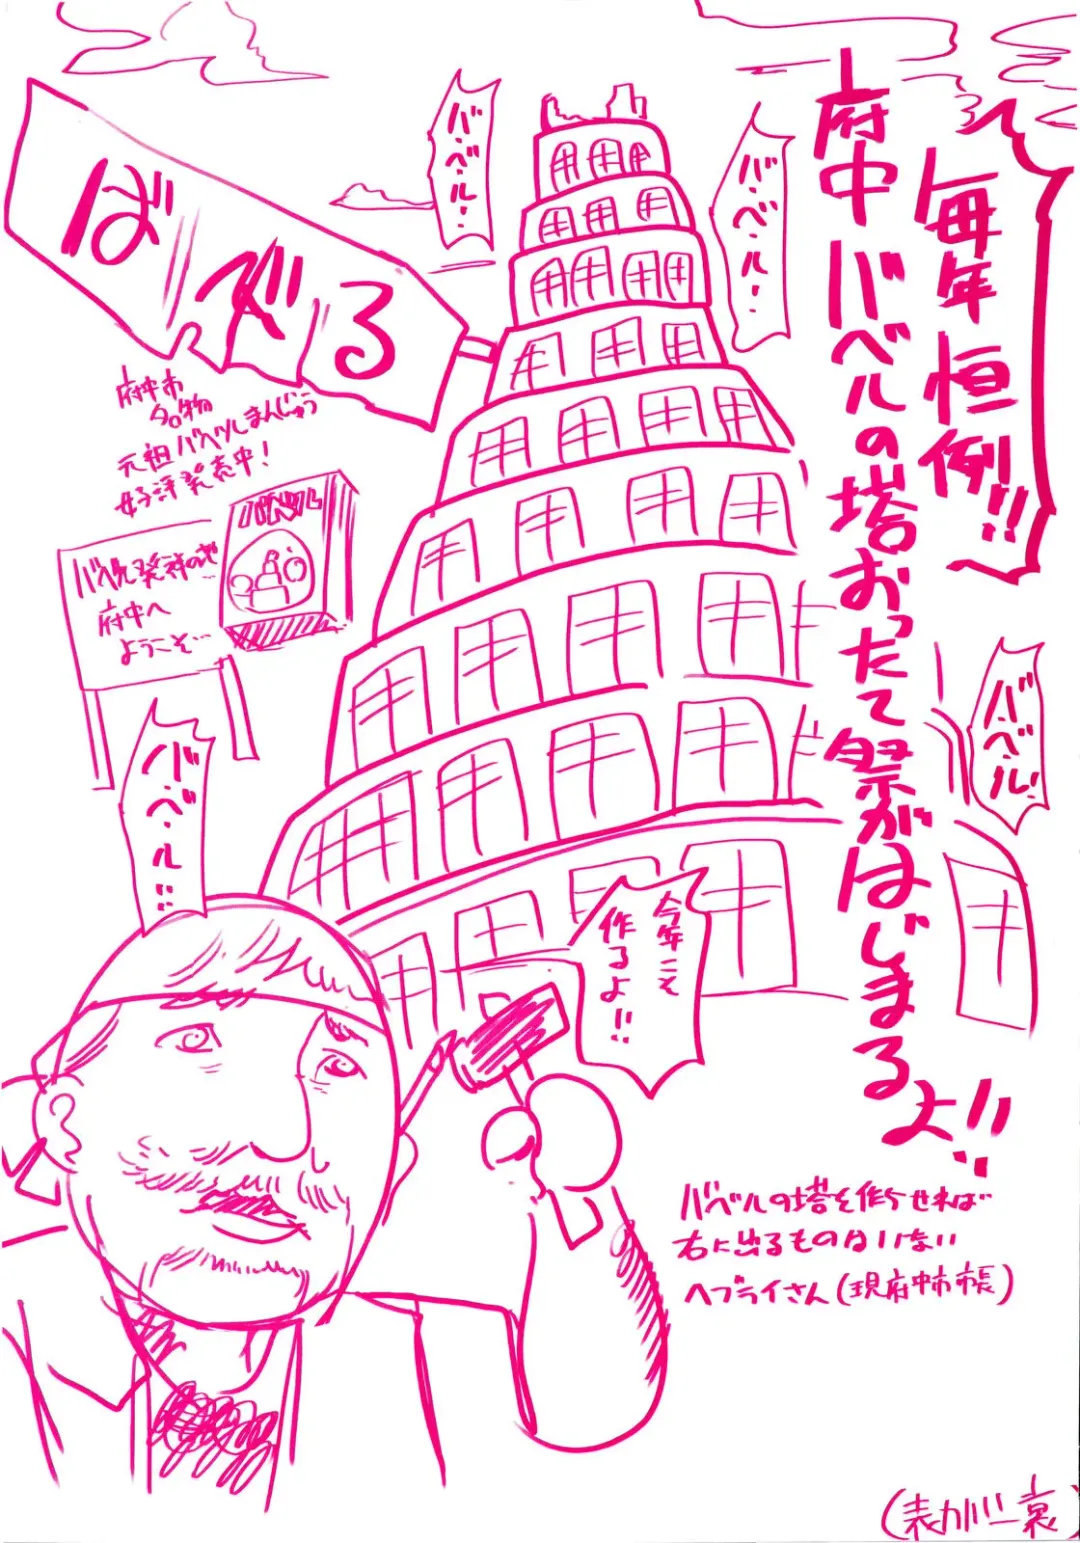 毎年恒例!!
府中バベルの塔おったて祭がはじまるよ!!
バ・ベ・ル!
バ・ベ・ル!
ばべる
府中市
名物
元祖バベルまんじゅう
好評発売中!
バベル
バベル発祥の地
府中へ
ようこそ…
バ・ベ・ル!
バ・ベ・ル!!
今年こそ
作るよ!!
バベルの塔を作らせれば
右に出るものはいない
ヘブライさん(現府中市市長)
(表カバー裏)